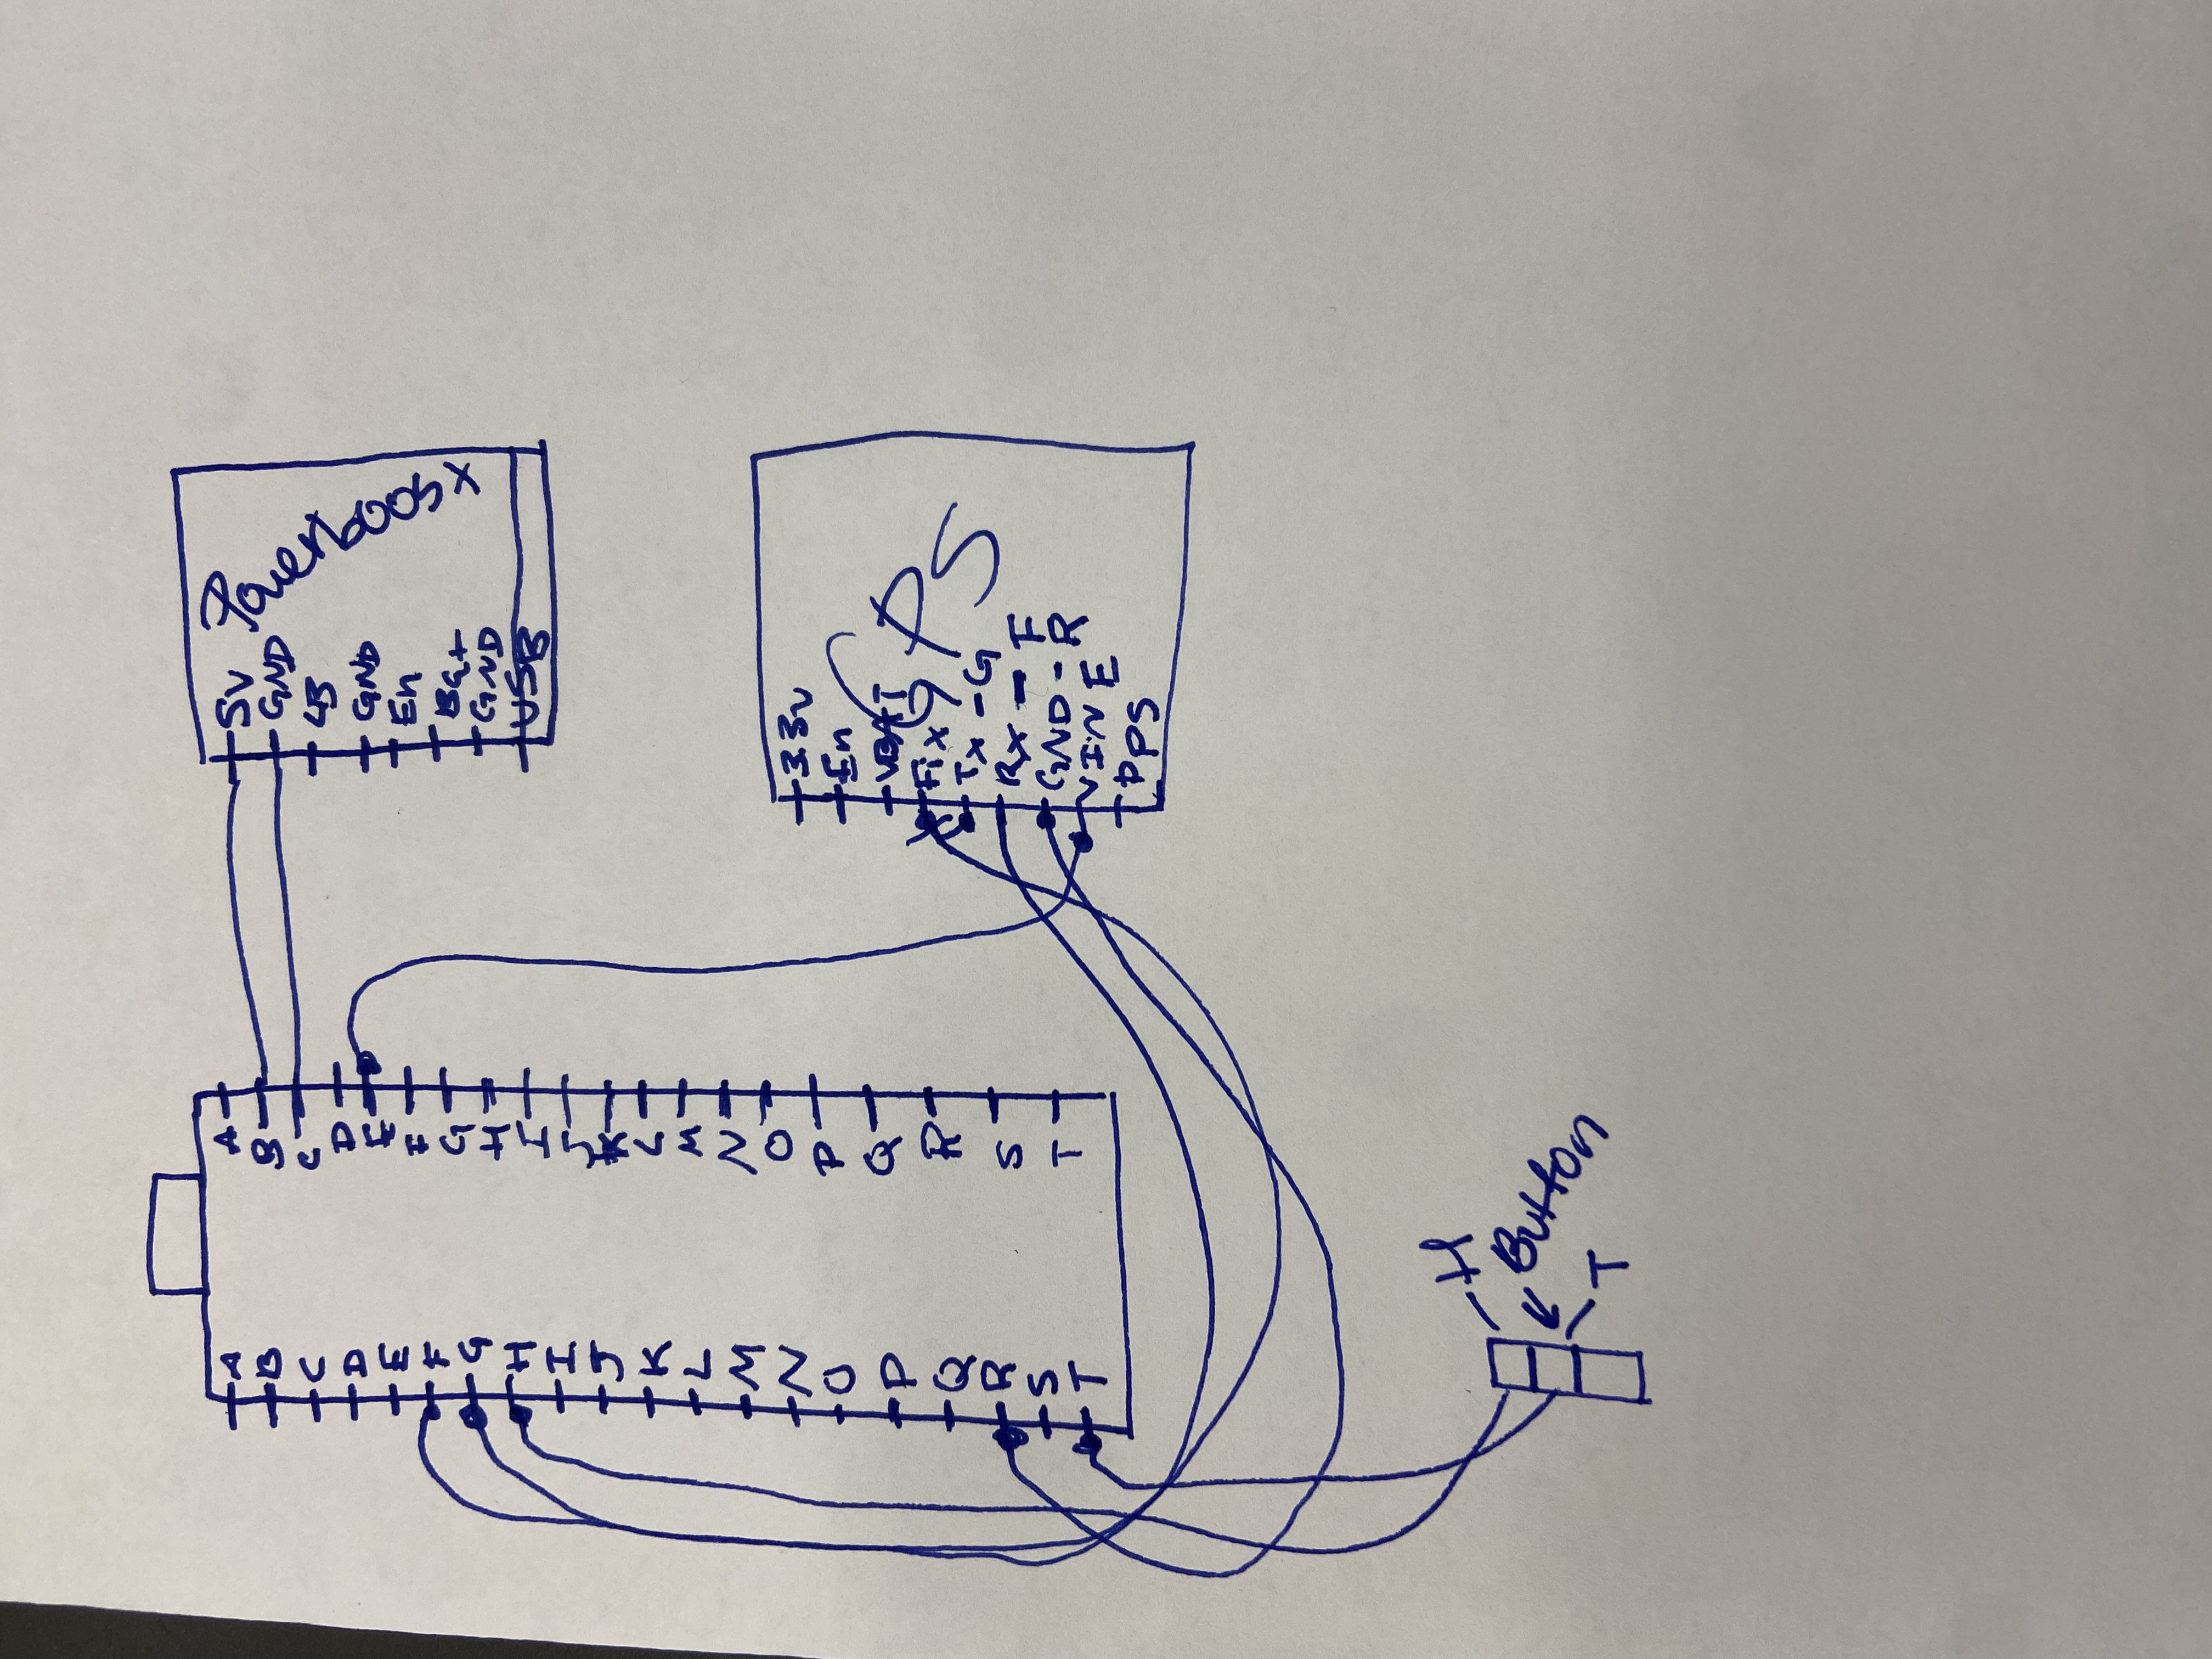 A
B
C
D
E
F
G
H
I
J
K
L
M
N
O
P
Q
R
S
T
A
B
C
D
E
F
G
H
I
J
K
L
M
N
O
P
Q
R
S
T
5V
GND
LB
GND
En
Bat
GND
USB
Powerboost
3.3v
En
VBAT
Fix
Tx - G
Rx - F
GND - R
VIN E
PPS
GPS
H
Button
T